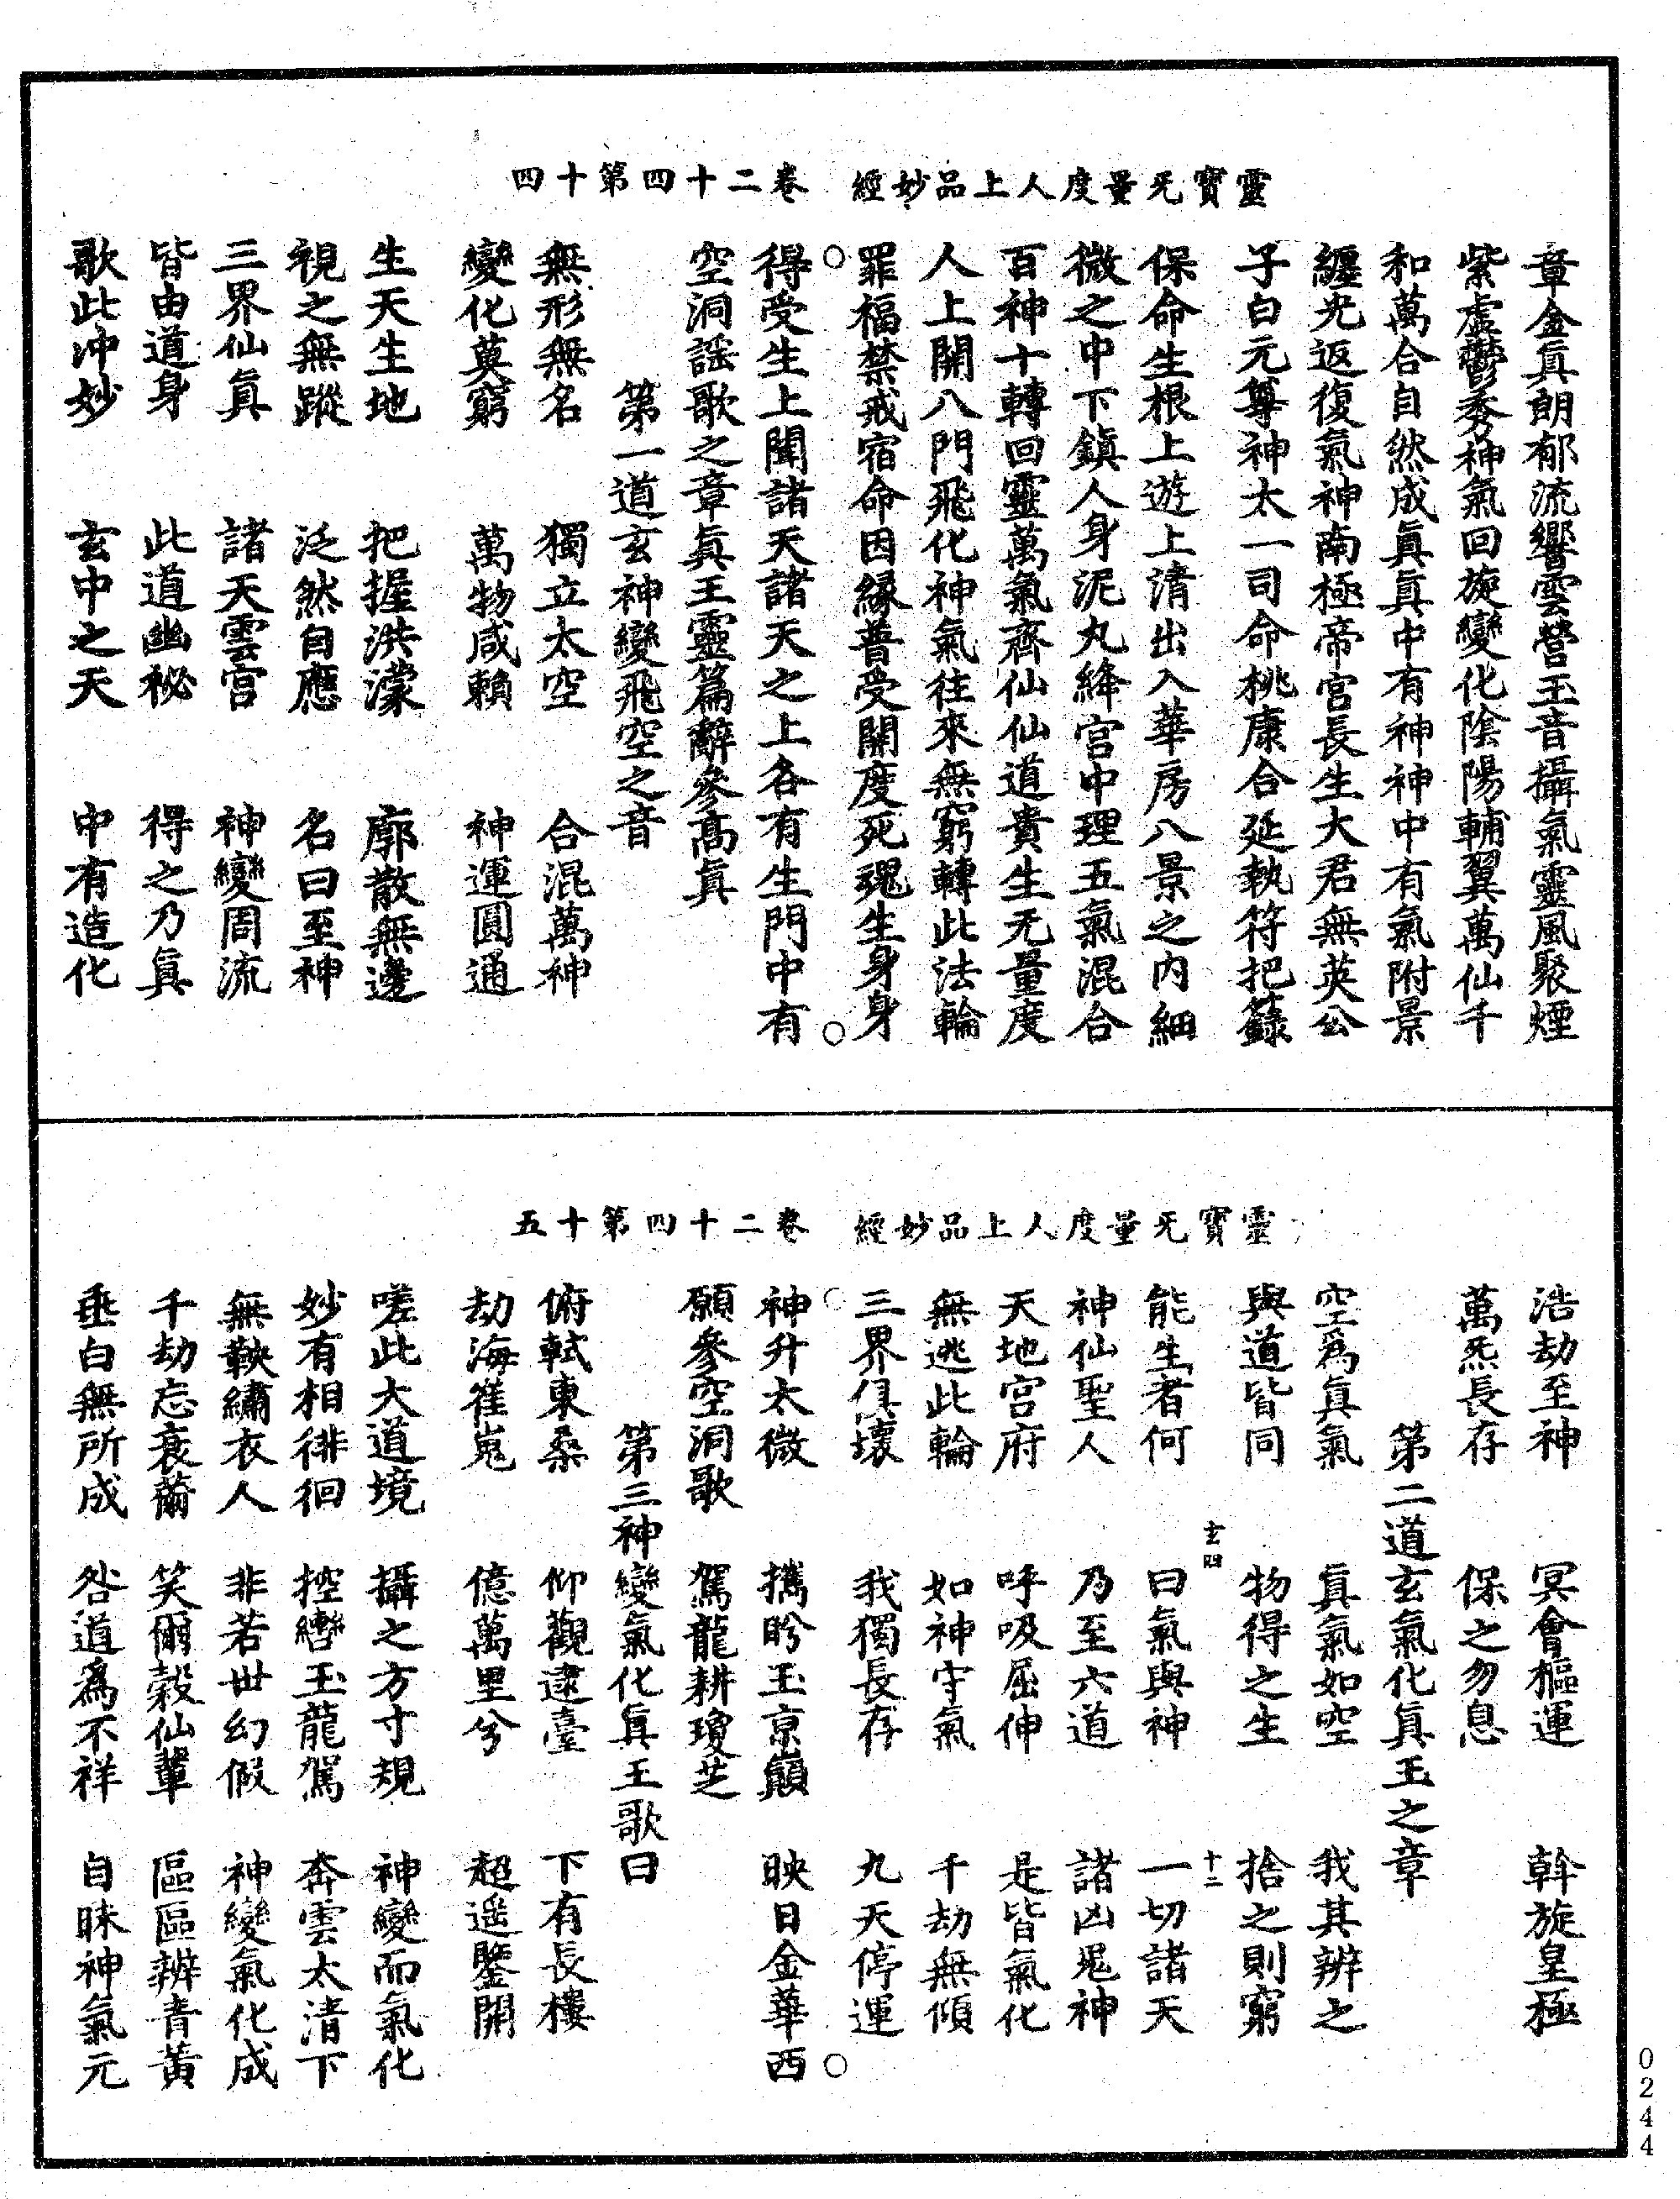 靈寶无量度人上品妙經　卷二十四第十四
章金真朗郁流響雲營玉音攝氣靈風聚煙
紫虛鬱秀神氣回旋變化陰陽輔翼萬仙千
和萬合自然成真真中有神神中有氣附景
纏光返復氣神南極帝宮長生大君無英公
子白元尊神太一司命桃康合延執符把籙
保命生根上遊上清出入華房八景之內細
微之中下鎮人身泥丸絳宮中理五氣混合
百神十轉回靈萬氣齊仙仙道貴生无量度
人上開八門飛化神氣往來無窮轉此法輪
罪福禁戒宿命因緣普受開度死魂生身身
得受生上聞諸天諸天之上各有生門中有
空洞謠歌之章真王靈篇辭參高真
第一道玄神變飛空之音
無形無名　獨立太空　合混萬神
變化莫窮　萬物咸賴　神運圓通
生天生地　把握洪濛　廓散無邊
視之無蹤　泛然自應　名曰至神
三界仙真　諸天雲宮　神變周流
皆由道身　此道幽祕　得之乃真
歌此沖妙　玄中之天　中有造化
靈寶无量度人上品妙經　卷二十四第十五
浩劫至神　冥會樞運　斡旋皇極
萬炁長存　保之勿息
第二道玄氣化真王之章
空為真氣　真氣如空　我其辨之
與道皆同　物得之生　捨之則窮
玄四　十二
能生者何　曰氣與神　一切諸天
神仙聖人　乃至六道　諸凶鬼神
天地宮府　呼吸屈伸　是皆氣化
無逃此輪　如神守氣　千劫無傾
三界俱壞　我獨長存　九天停運
神升太微　攜盻玉京巔　映日金華西
願參空洞歌　駕龍耕瓊芝
第三神變氣化真王歌曰
俯軾東桑　仰觀逮臺　下有長樓
劫海崔嵬　億萬里兮　超遥鑒開
嗟此大道境　攝之方寸規　神變而氣化
妙有相徘徊　控轡玉龍駕　奔雲太清下
無鞅繡衣人　非若世幻假　神變氣化成
千劫忘衰薾　笑爾穀仙輩　區區辨青黃
垂白無所成　咎道為不祥　自昧神氣元
0244